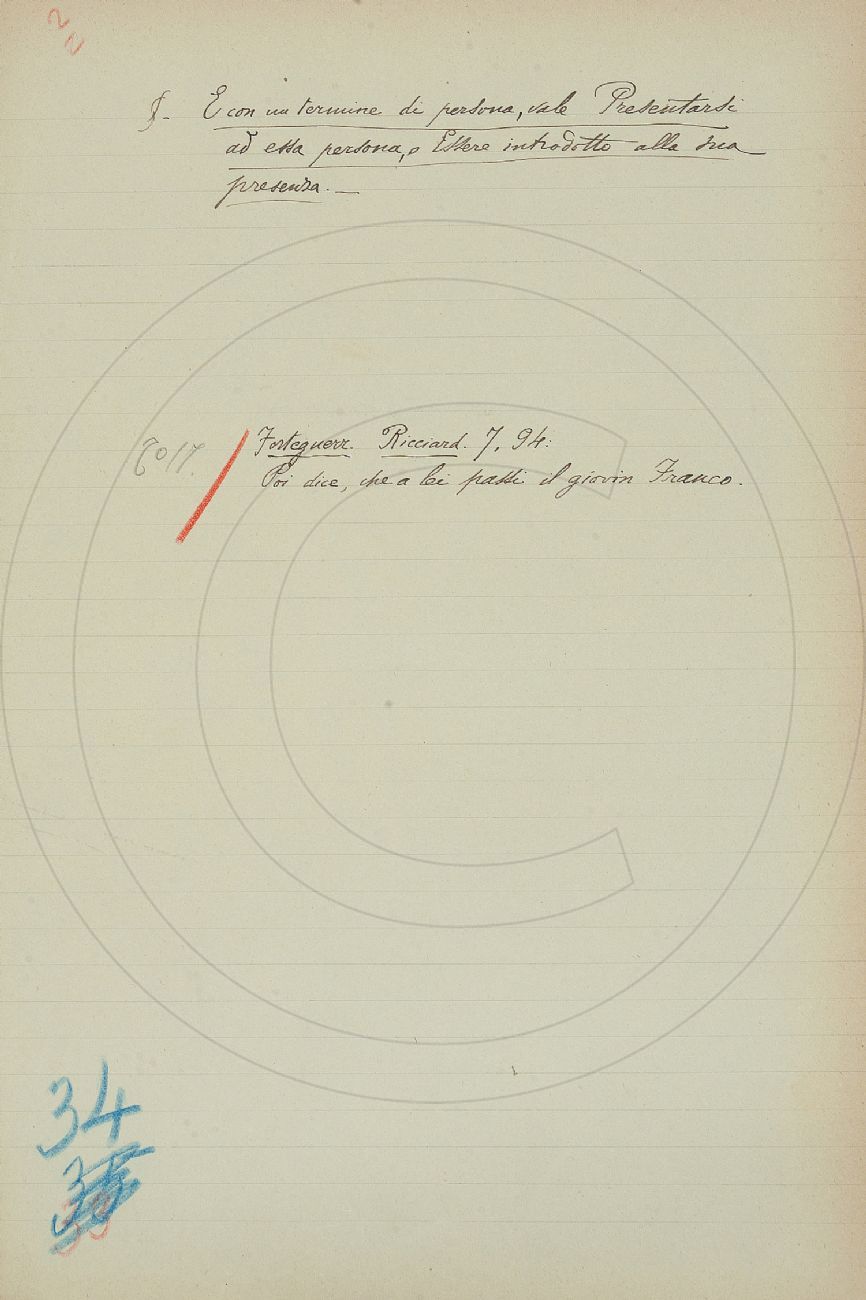 22
§. E con un termine di persona, vale Presentarsi
ad essa persona, o Essere introdotto alla sua
presenza. —
Forteguerr. Ricciard. 7. 94:
Poi dice, che a lei passi il giovin Franco.
34